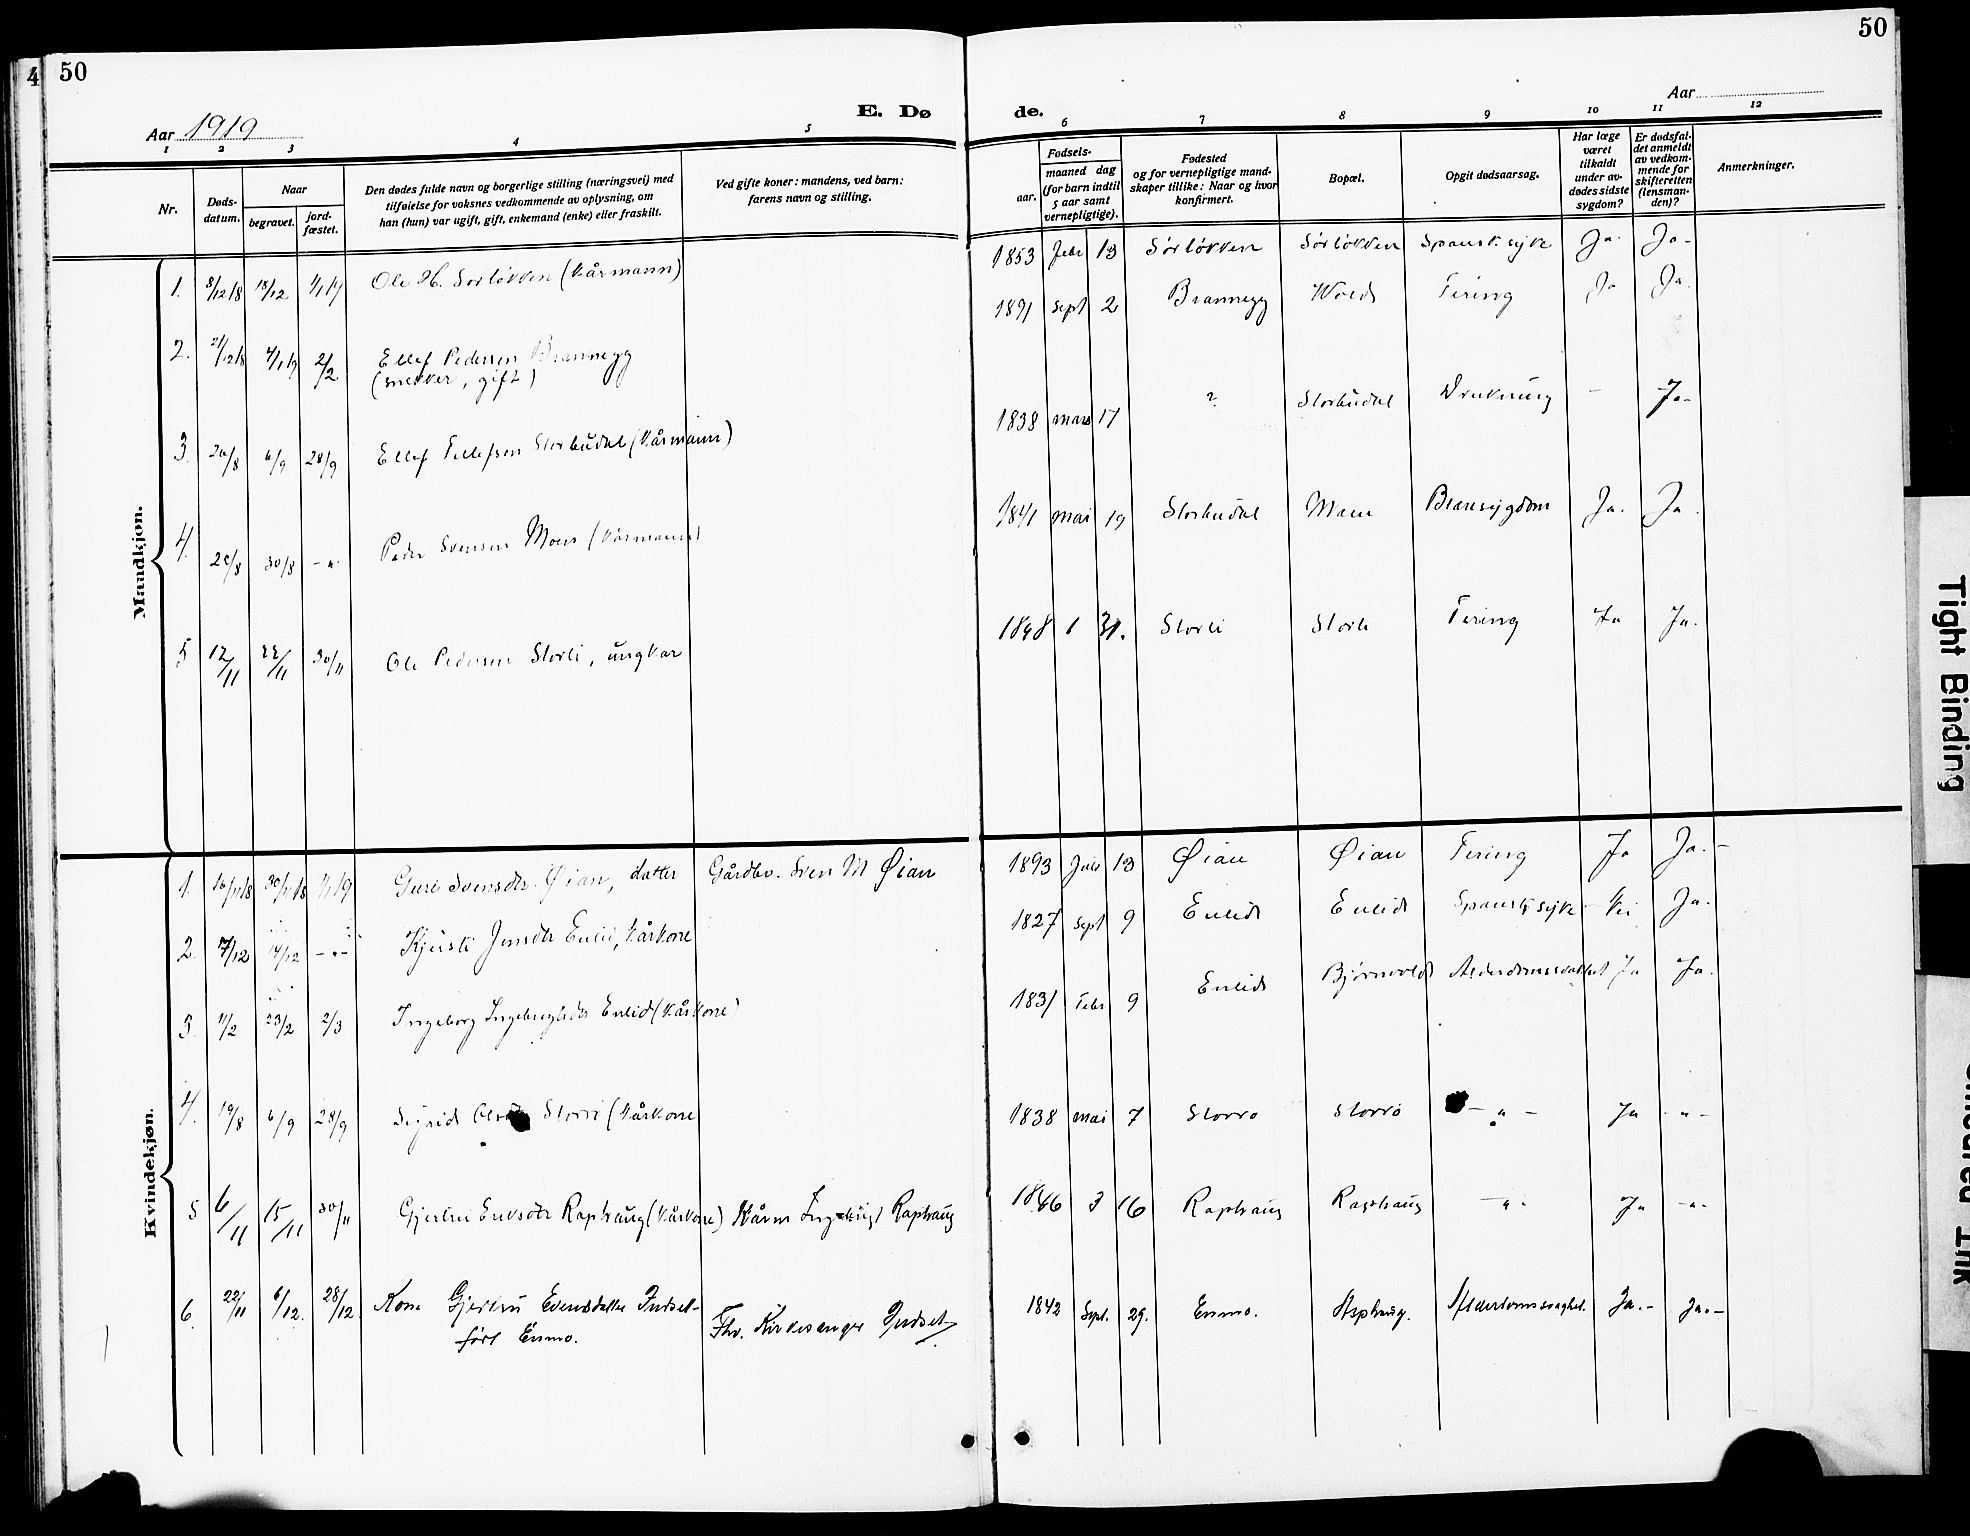 4 50
50
Aar 1919
E. Dø
de.
Aar
1 2 3 4 5
6 7 8 9 10 11 12
Nr.
Døds-
datum.
Naar
begravet.
jord-
fæstet.
Den dødes fulde navn og borgerlige stilling (næringsvei) med
tilføielse for voksnes vedkommende av oplysning, om
han (hun) var ugift, gift, enkemand (enke) eller fraskilt.
Ved gifte koner: mandens, ved barn:
farens navn og stilling.
Fødsels-
aar.
maaned dag
(for barn indtil
5 aar samt
vernepligtige).
Fødested
og for vernepligtige mand-
skaper tillike: Naar og hvor
konfirmert.
Bopæl.
Opgit dødsaarsag.
Har læge
været
tilkaldt
under av-
dødes sidste
sygdom?
Er dødsfal-
det anmeldt
av vedkom-
mende for
skifteretten
(lensman-
den)?
Anmerkninger.
Maadkjøn.
1. 8/12 18 18/12 1/1 19 Ole H. Sørløkken (kårmann) 1853 Febr 13 Sørløkken Sørløkken Spansk syke Ja Ja-
2. 21/12 18 4/1 19 2/2 Ellef Pedersen Brannegg
(snekker, gift) 1891 Sept 2 Brannegg Wold Tering Ja Ja.
3. 26/8 6/9 28/9 Ellef Tellefsen Storbudal (kårmann) 1838 mars 17 ? Storbudal Drukning - Ja-
4. 20/8 30/8 -"- Peder Svensen Moen (kårmann) 1841 mai 19 Storbudal Moen Brænsygdom Ja. Ja.
5 12/11 22/11 30/11 Ole Pedersen Storli, ungkar 1848 1 31. Storli Storli Tering Ja Ja.
Kvindekjøn.
1. 16/11 18 30/11 18 1/1 19 Guri Svensdtr. Øian, datter Gårdbr. Sven M Øian 1893 Juli 13 Øian Øian Tering Ja Ja.-
2. 7/12 14/12 -"- Kjersti Jensdtr Enlid, kårkone 1827 Sept 9 Enlid Enlid Spansk syke Nei Ja.
3. 11/2 23/2 2/3 Ingeborg Ingebrigtsdtr Enlid (kårkone) 1831 Febr 9 Enlid Bjørnvold Alderdomssvakhet Ja Ja.
4. 19/8 6/9 28/9 Sigrid Olsdtr Storrø (kårkone 1838 mai 7 Storrø Storrø -"- Ja -"-
5 6/11 15/11 30/11 Gjertru Eriksdtr Raphaug (kårkone) Kårm Ingebrigt Raphaug 1846 3 16 Raphaug Raphaug -"- Ja -"-
6. 22/11 6/12. 28/12. Kone Gjertru Evensdatter Indset-
født Enmo. Fhv. Kirkesanger Indset. 1842 Sept. 29. Enmo. Rsphaug. Alderdomssvaghet. Ja.- Ja.-
Tight Binding